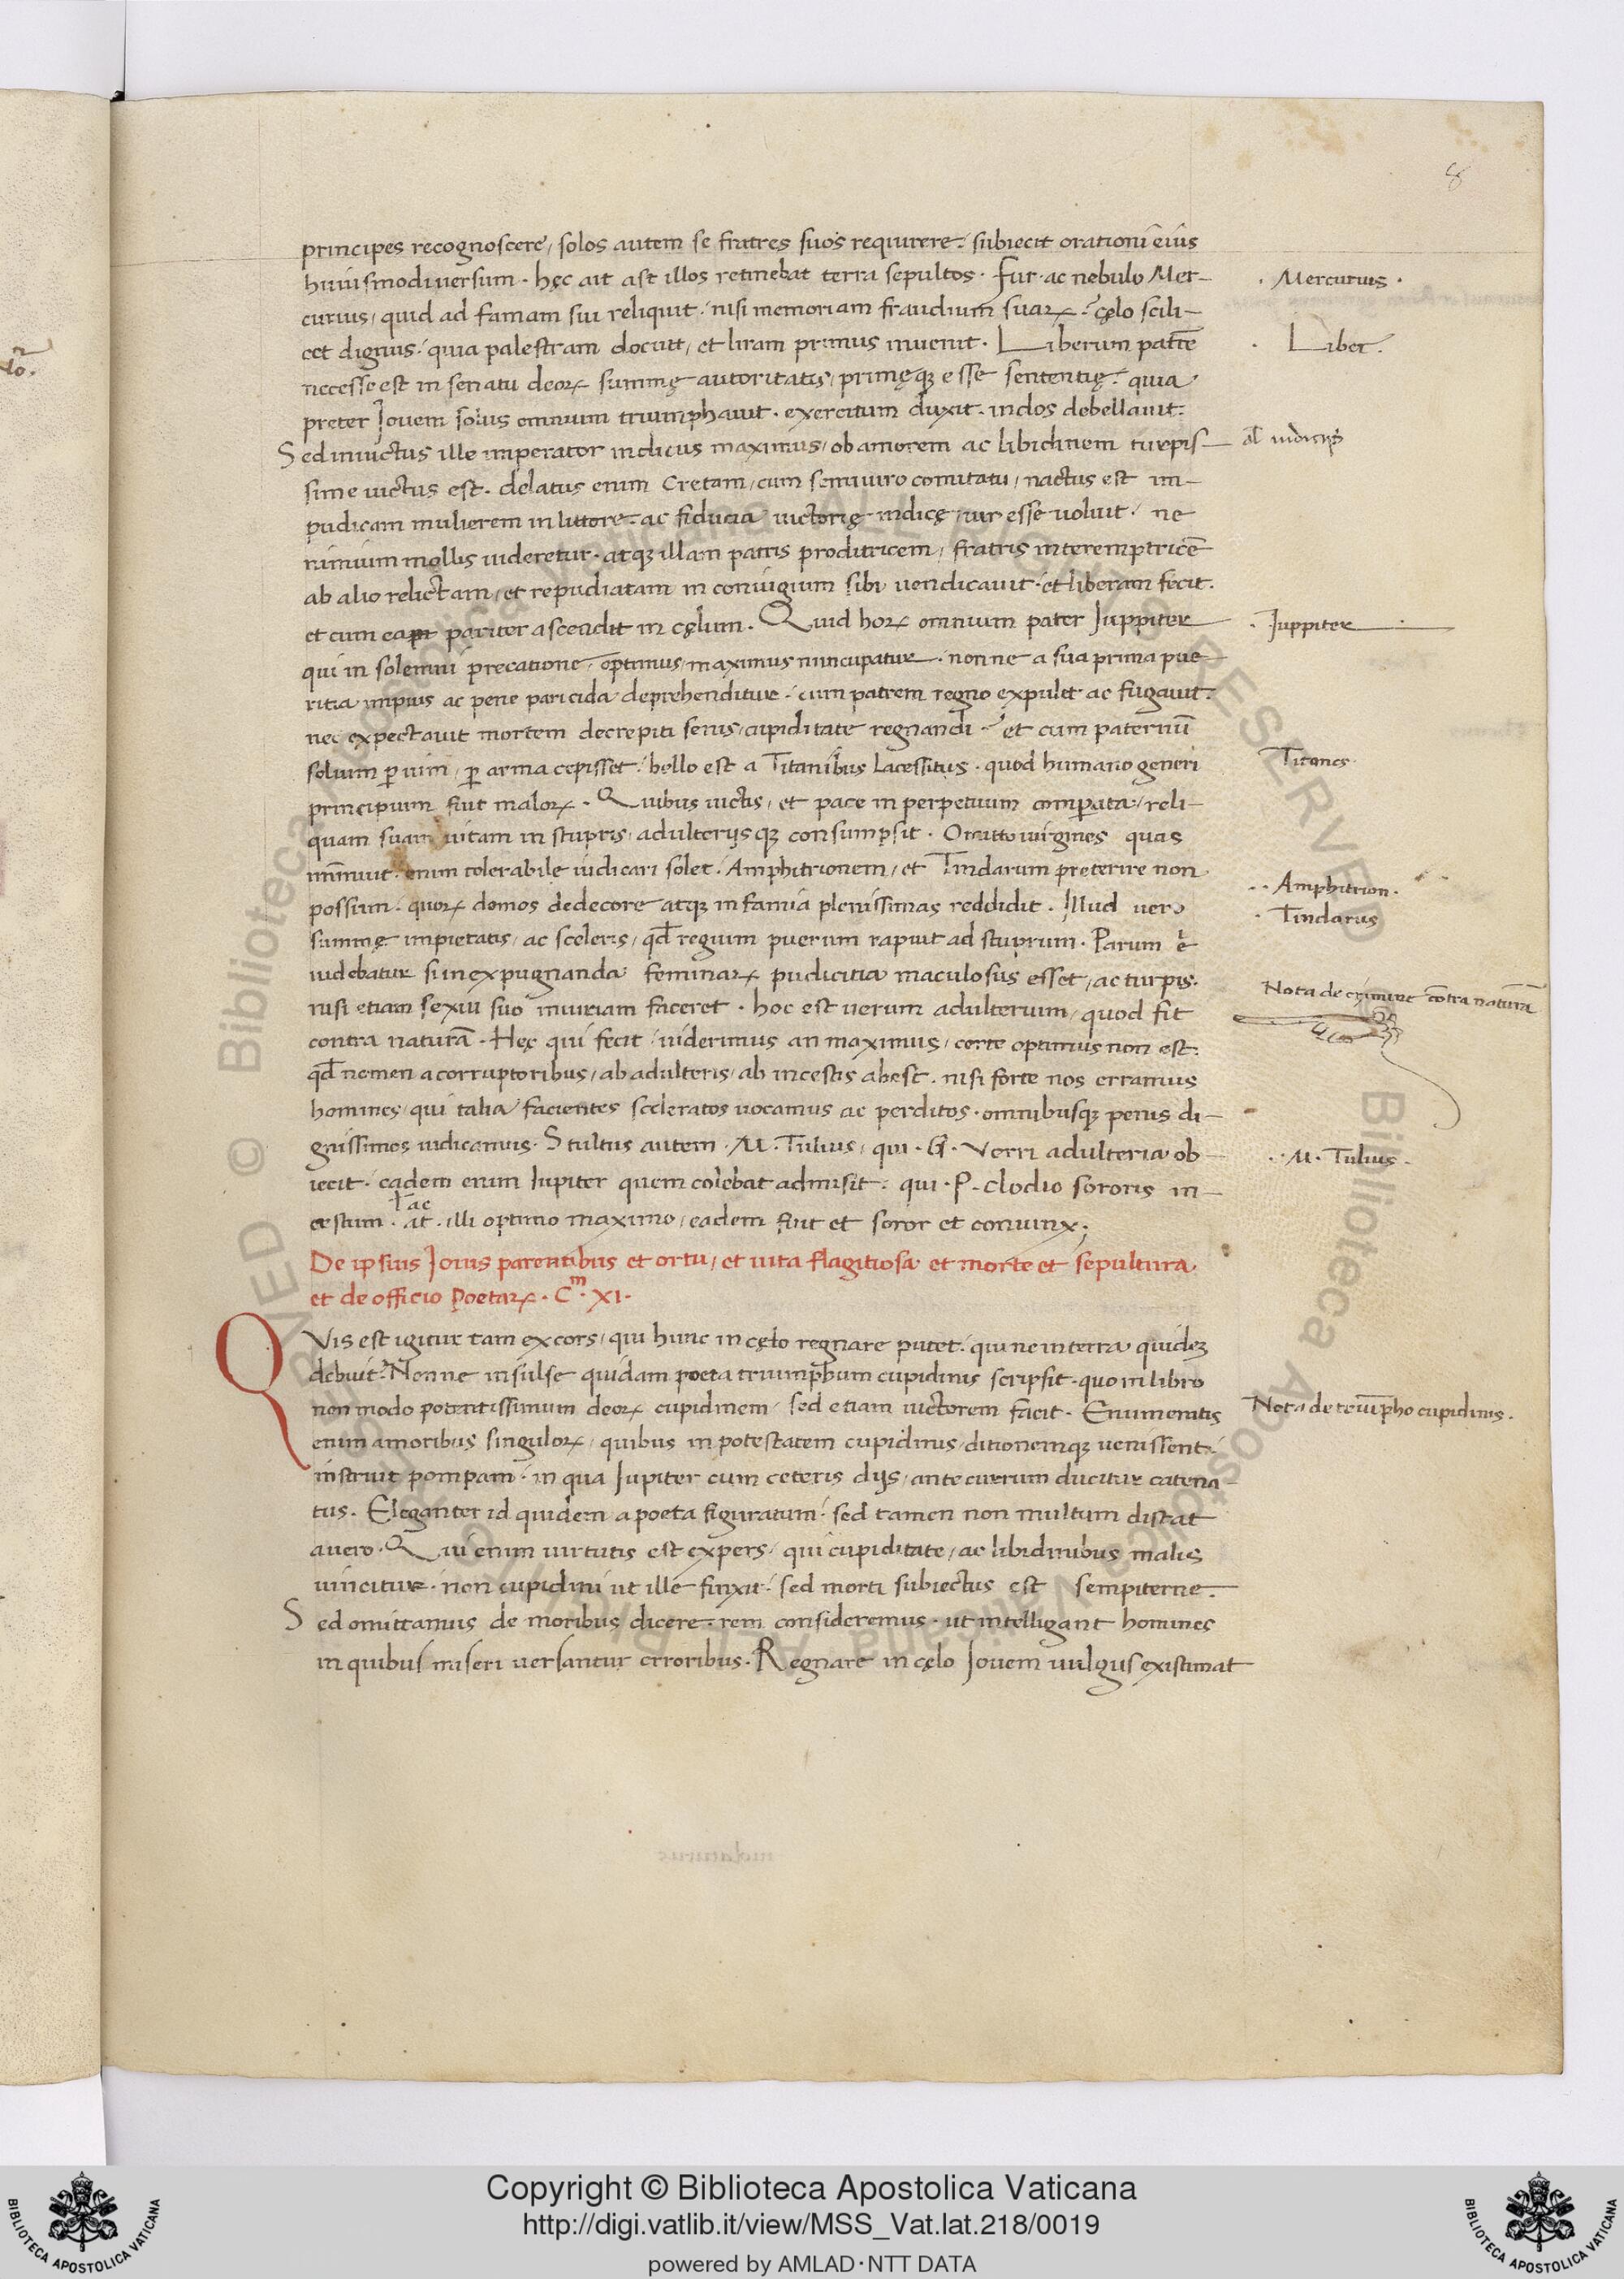 8
principes recognoscere, solos autem se fratres suos requirere. subiecit orationi eius
huiusmodi uersum. hęc ait ast illos retinebat terra sepultos. Fur ac nebulo Mer-
curius, quid ad famam sui reliquit. nisi memoriam fraudium suarꝝ? cęlo scili-
cet dignus. quia palestram docuit, et liram primus inuenit. Liberum patrē
necesse est in senatu deorꝝ summę autoritatis, primęqꝫ esse sententię. quia
preter Iouem solus omnium triumphauit. exercitum duxit. indos debellauit.
Sed inuictus ille imperator indicus maximus, ob amorem ac libidinem turpis-
sime uictus est. delatus enim Cretam, cum semiuiro comitatu, nactus est im-
pudicam mulierem in littore. ac fiducia uictorię indicę, uir esse uoluit. ne
nimium mollis uideretur. atqꝫ illam patris proditricem, fratris interemptricē
ab alio relictam, et repudiatam in coniugium sibi uendicauit. et liberam fecit.
et cum ea pariter ascendit in cęlum. Quid horꝝ omnium pater Iuppiter
qui in solemni precatione, optimus, maximus nuncupatur. nonne a sua prima pue-
ritia impius ac pene paricida deprehenditur. cum patrem regno expulit ac fugauit.
nec expectauit mortem decrepiti senis, cupiditate regnandi? et cum paternū
solium ꝑ uim, ꝑ arma cepisset. bello est a Titanibus lacessitus. quod humano generi
principium fuit malorꝝ. Quibus uictis, et pace in perpetuum comparata, reli-
quam suam uitam in stupris, adulteriisqꝫ consumpsit. Omitto uirgines quas
imminuit. enim tolerabile iudicari solet. Amphitrionem, et Tindarum preterire non
possum. quorꝝ domos dedecore atqꝫ infamia plenissimas reddidit. Illud uero
summę impietatis, ac sceleris, qđ regium puerum rapuit ad stuprum. Parum .n.
uidebatur si in expugnanda feminarꝝ pudicitia maculosus esset, ac turpis.
nisi etiam sexui suo iniuriam faceret. hoc est uerum adulterium, quod fit
contra naturā. Hęc qui fecit, uiderimus an maximus, certe optimus non est.
qđ nomen a corruptoribus, ab adulteris, ab incestis abest. nisi forte nos erramus
homines, qui talia facientes sceleratos uocamus ac perditos. omnibusqꝫ penis di-
gnissimos iudicamus. Stultus autem .M. Tulius, qui .G. Verri adulteria ob-
iecit. eadem enim Iupiter quem colebat admisit. qui .P. clodio sororis in-
ł ac
cestum. at. illi optimo maximo, eadem fuit et soror et coniunx.
De ipsius Iouis parentibus et ortu, et uita flagitiosa et morte et sepultura
et de officio Poetarꝝ. Cm. XI.
QVis est igitur tam excors, qui hunc in cęlo regnare putet. qui ne in terra quideꝫ
debuit? Nonne insulse quidam poeta triumphum cupidinis scripsit. quo in libro
non modo potentissimum deorꝝ cupidinem, sed etiam uictorem facit. Enumeratis
enim amoribus singulorꝝ, quibus in potestatem cupidinis, ditionemqꝫ uenissent.
instruit pompam. in qua Iupiter cum ceteris dijs, ante currum ducitur catena-
tus. Eleganter id quidem a poeta figuratum. sed tamen non multum distat
a uero. Qui enim uirtutis est expers, qui cupiditate, ac libidinibus malis
uincitur. non cupidini ut ille finxit. sed morti subiectus est sempiterne.
Sed omittamus de moribus dicere. rem consideremus. ut intelligant homines
in quibus miseri uersantur erroribus. Regnare in cęlo Iouem uulgus existimat
. Mercurius .
. Liber.
al̄ indicijs
. Iuppiter
Titanes
.. Amphitrion.
. Tindarus
Nota de crimine cōtra naturā
.. M. Tulius.
Nota de triūpho cupidinis.
Copyright © Biblioteca Apostolica Vaticana
http://digi.vatlib.it/view/MSS_Vat.lat.218/0019
powered by AMLAD·NTT DATA
BIBLIOTECA APOSTOLICA VATICANA
BIBLIOTECA APOSTOLICA VATICANA